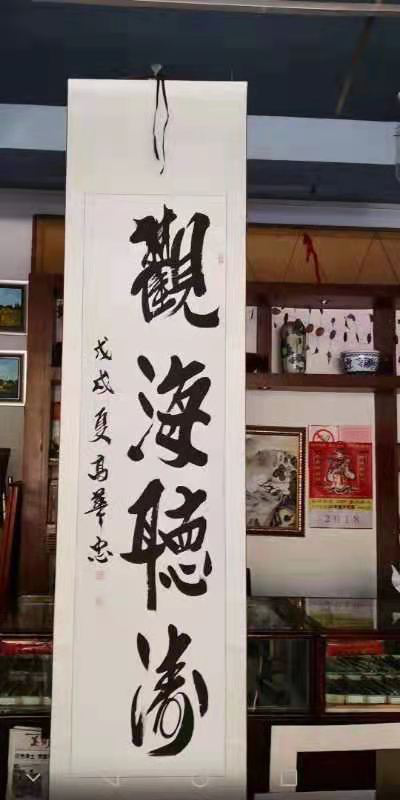 觀海聽濤
戊戌夏高華忠
2018